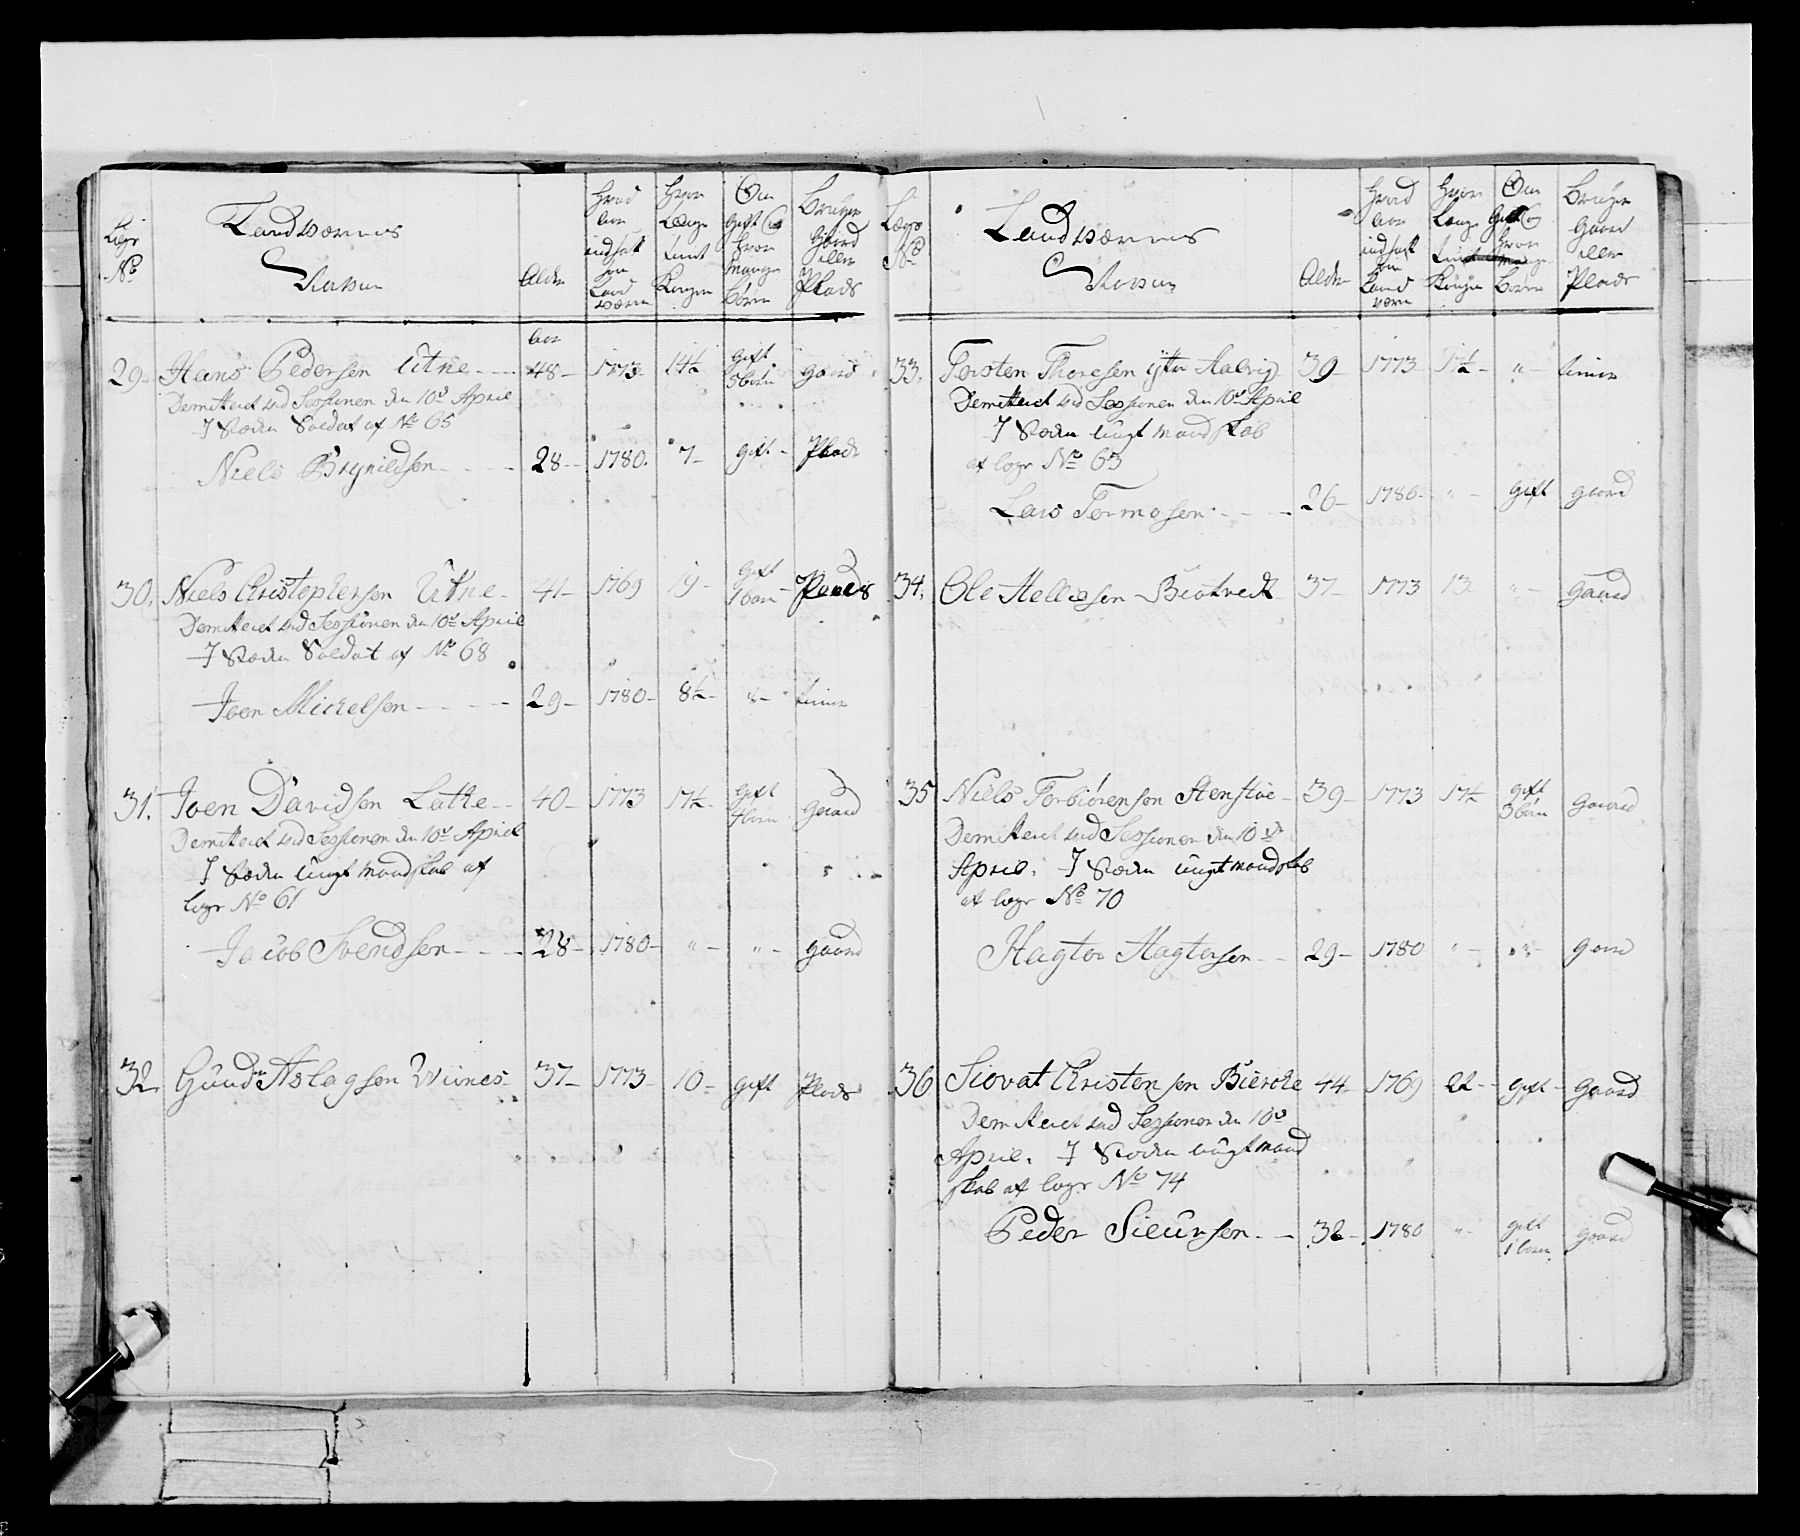 Lægs No
Landværnes Nafne
Alder
Hvad Aar indsat for Land værn
Hvor Længe tient Kongen
Om Gift og hvor Mange Børn
Bruger Gaard eller Plads
Aar
29 Hans Pedersen Utne 48 1773 14½ gift 3 børn gaard
Demitteret ved Sessionen den 10de April
I Steden Soldat af No 65
Niels Brynildsen 28 1780 7 gift Plads
30. Niels Christophersen Utne 41 1769 19 Gift 1 barn Plads
Demitteret ved Sessionen den 10de April
I Steden Soldat af No 68
Joen Mickelsen 29 1780 8½ " tiener
31. Joen Davidsen Lotte 40 1773 17½ gift 4 børn gaard
Demitteret ved Sessionen den 10de April
I Steden ungt mandskab af
lægs No 61
Jacob Svendsen 28 1780 " " gaard
32 Gundr Aslagsen Wiines 37 1773 10 gift Plads
Lægs No
Landværnes Nafne
Alder
Hvad Aar indsat for Land værn
Hvor Længe tient Kongen
Om Gift og hvor mange Børn
Bruger Gaard eller Plads
33. Torsten Thoresen ytre Aalvig 39 1773 17½ " tiener
Demitteret ved Sessionen den 10de April
I Steden ungt mandskab
af lægs No 63
Lars Tormosen 26 1780 " gift gaard
34. Ole Helliesen Biotvedt 37 1773 13 " gaard
35 Niels Torbiørensen Stenstøe 39 1773 17½ gift 3 børn gaard
Demitteret ved Sessionen den 10de
April. I Steden ungt mandskab
af lægs No 70
Hagtor Hagtorsen 29 1780 " " gaard
36 Siovat Christensen Bierche 44 1769 22 gift gaard
Demitteret ved Sessionen den 10de
April. I Steden ungt mand
skab af lægs No 74
Peder Siursen 32 1780 " gift 1 barn gaard